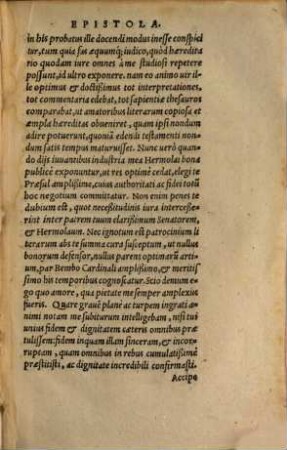 EPISTOLA.
in his probatus ille docendi modus inesse conspici
tur, tum quia fas æquumq́; iudico, quòd hæredita
rio quodam iure omnes à me studiosi repetere
possunt, id ultro exponere. nam eo animo uir il-
le optimus & doctissimus tot interpretationes,
tot commentaria edebat, tot sapientiæ thesauros
comparabat, ut amatoribus literarum copiosa et
ampla hæreditas obueniret, quam ipsi nondum
adire potuerunt, quoniã edendi testamenti non
dum satis tempus maturuisset. Nunc uerò quan-
do dijs iuuantibus industria mea Hermolai bona
publicè exponuntur, ut res optimè cedat, elegi te
Præsul amplissime, cuius authoritati ac fidei totũ
hoc negotium committatur. Non enim penes te
dubium est, quot necessitudinis iura intercesse-
rint inter patrem tuum clarissimum Senatorem,
& Hermolaum. Nec ignotum est patrocinium li
terarum abs te summa cura susceptum, ut nullus
bonorum defensor, nullus parens optimarũ arti-
um, par Bembo Cardinali amplissimo, & meritis
simo his temporibus cognoscatur. Scio demum e-
go quo amore, qua pietate me semper amplexus
fueris. Quare grauè planè ac turpem ingrati a-
nimi notam me subiturum intelligebam, nisi tu
unius fidem & dignitatem cæteris omnibus præ
tulissem: fidem inquam illam sinceram, & incor-
ruptam, quam omnibus in rebus cumulatissimè
præstitisti, ac dignitate incredibili confirmasti.
Accipe